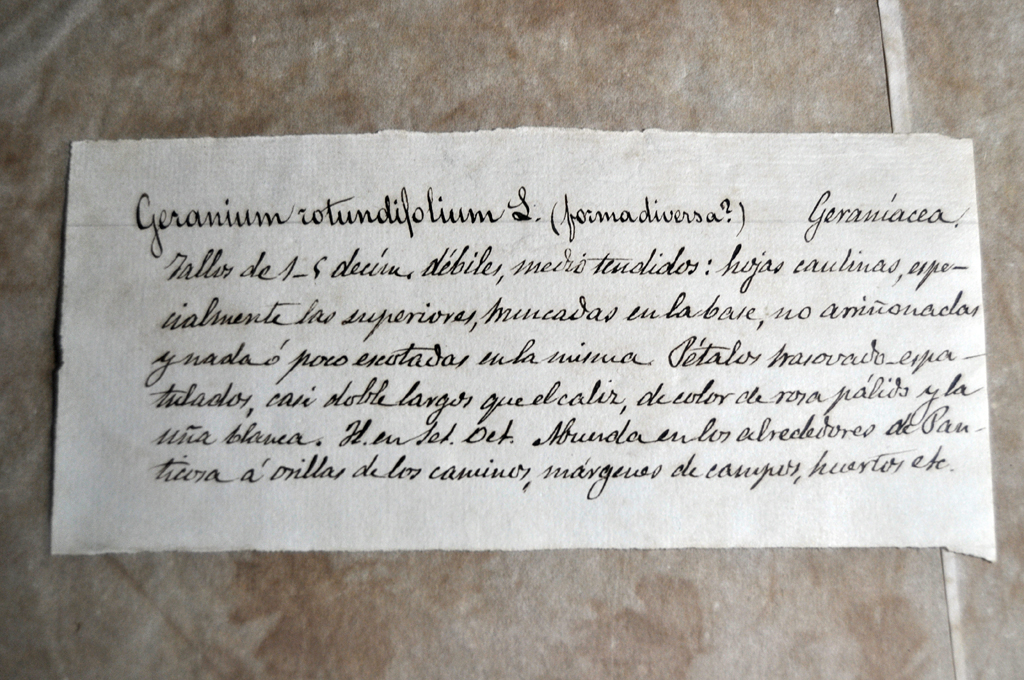 Geranium rotundifolium L. (forma diversa?) Geraníacea.
Tallos de 1-5 decím. débiles, medio tendidos: hojas caulinas, espe-
cialmente las superiores, truncadas en la base, no arriñonadas
y nada ó poco escotadas en la misma. Pétalos trasovado-espa-
tulados, casi doble largos que el caliz, de color de rosa pálido y la
uña blanca. H. en Set. Oct. Abunda en los alrededores de Pan-
ticosa á orillas de los caminos, márgenes de campos, huertos etc.